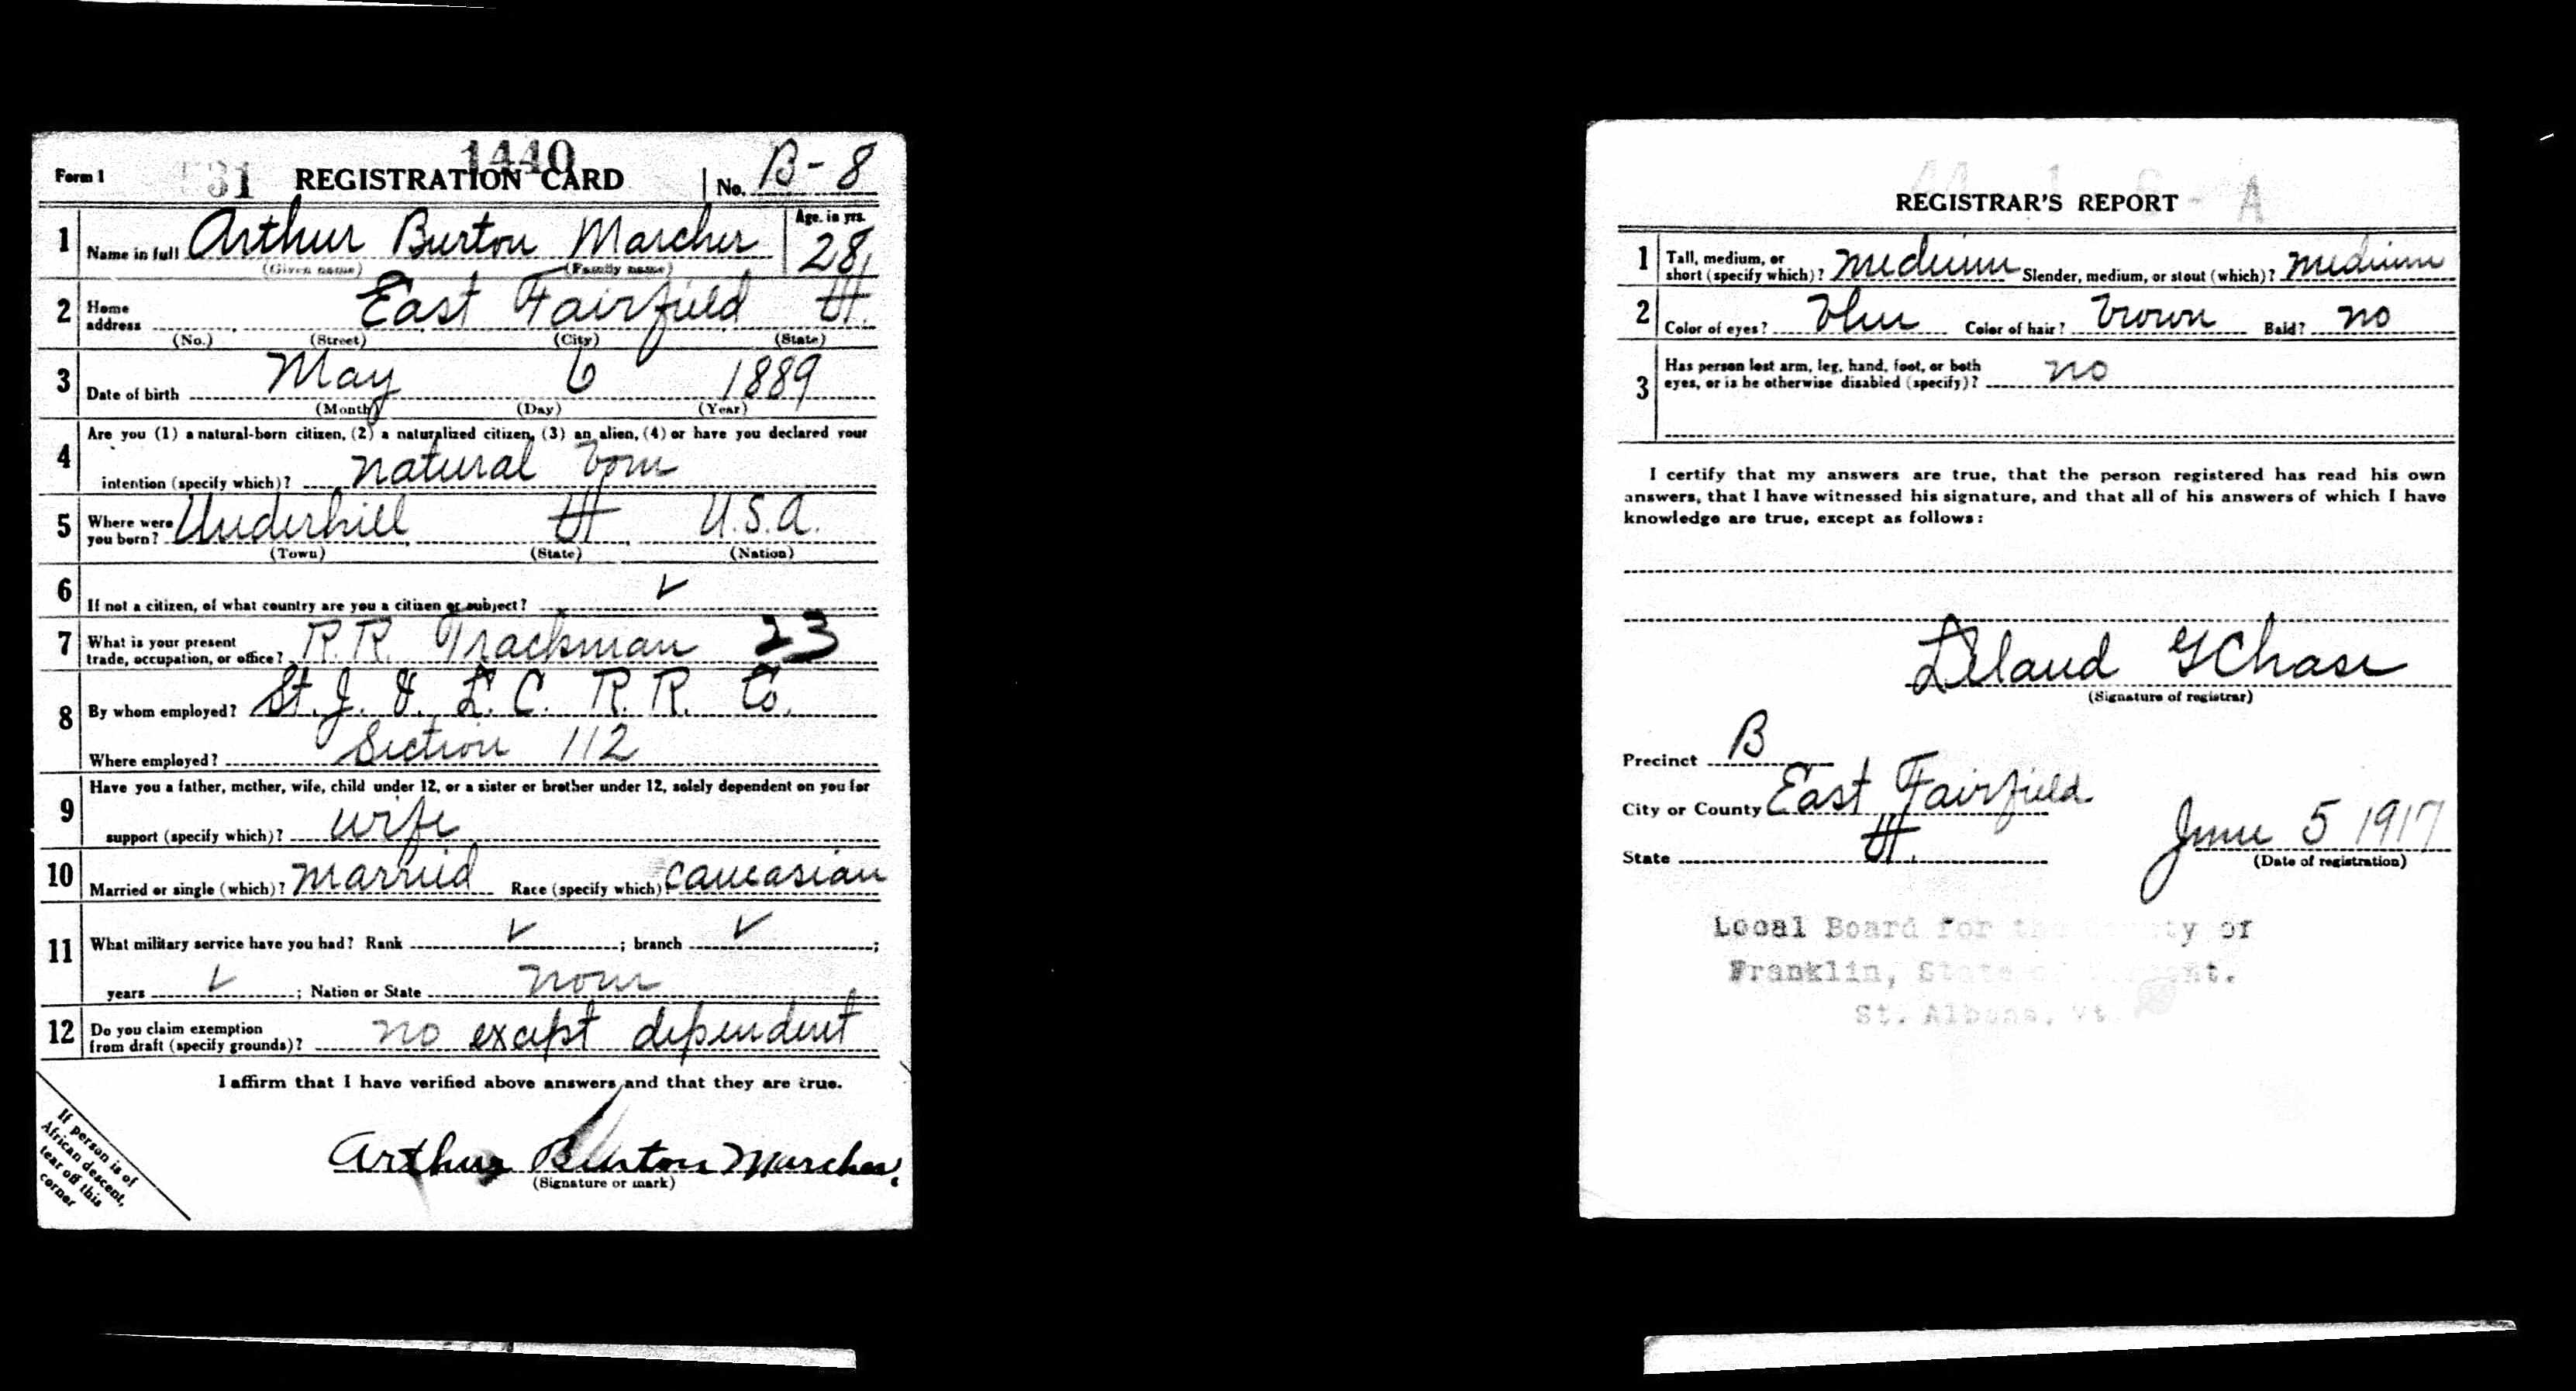 1440
Form 1 31 REGISTRATION CARD No. B-8
1 Name in full Arthur Burton Marcher Age, in yrs. 28
(Given name) (Family name)
2 Home address East Fairfield Vt.
(No.) (Street) (City) (State)
3 Date of birth May 6 1889
(Month) (Day) (Year)
4 Are you (1) a natural-born citizen, (2) a naturalized citizen, (3) an alien, (4) or have you declared your
intention (specify which)? natural born
5 Where were you born? Underhill Vt U.S.A.
(Town) (State) (Nation)
6 If not a citizen, of what country are you a citizen or subject? ✓
7 What is your present trade, occupation, or office? R.R. Trackman 23
8 By whom employed? St. J. & L. C. R. R. Co.
Where employed? Section 112
9 Have you a father, mother, wife, child under 12, or a sister or brother under 12, solely dependent on you for
support (specify which)? wife
10 Married or single (which)? married Race (specify which)? caucasian
11 What military service have you had? Rank ✓ ; branch ✓ ;
years ✓ ; Nation or State none
12 Do you claim exemption from draft (specify grounds)? no except dependent
I affirm that I have verified above answers and that they are true.
Arthur Burton Marcher.
(Signature or mark)
If person is of
African descent,
tear off this
corner
REGISTRAR'S REPORT - A
1 Tall, medium, or short (specify which)? medium Slender, medium, or stout (which)? medium
2 Color of eyes? blue Color of hair? brown Bald? no
3 Has person lost arm, leg, hand, foot, or both
eyes, or is he otherwise disabled (specify)? no
I certify that my answers are true, that the person registered has read his own
answers, that I have witnessed his signature, and that all of his answers of which I have
knowledge are true, except as follows:
Leland G Chase
(Signature of registrar)
Precinct B
City or County East Fairfield
State Vt. June 5 1917
(Date of registration)
Local Board for the County of
Franklin, State of Vermont.
St. Albans, Vt.